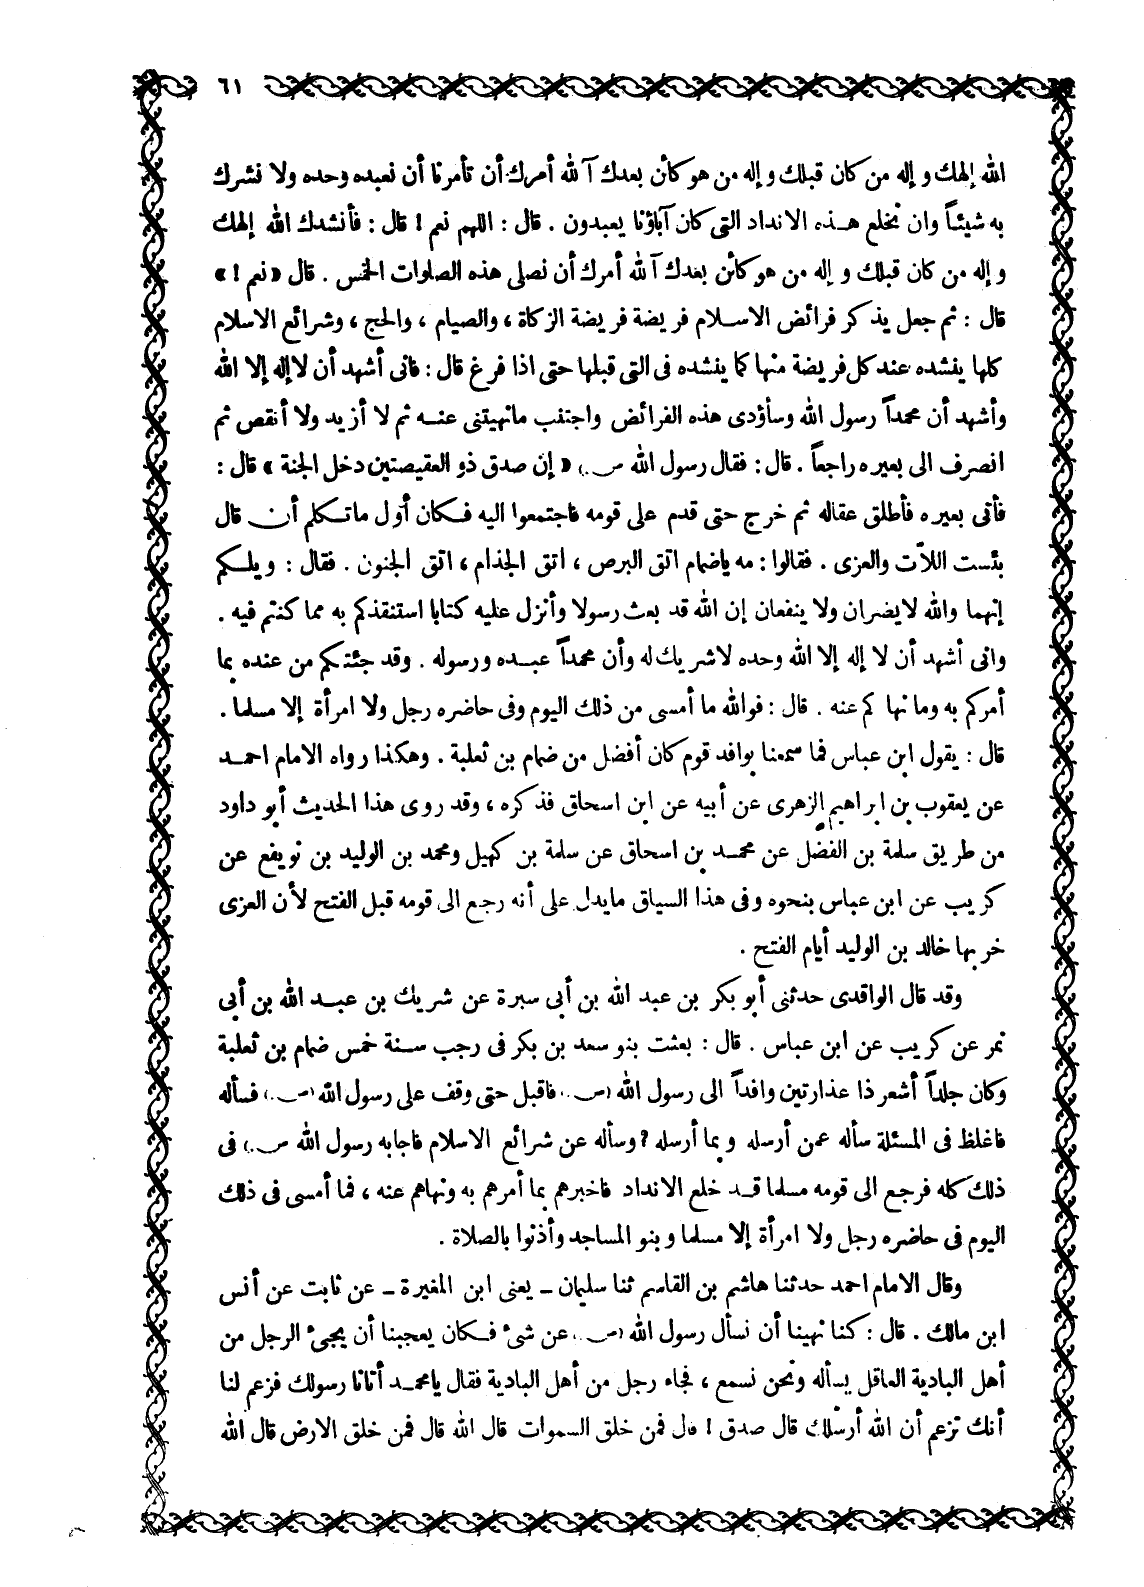 ٦١
الله إلهك و إله من كان قبلك و إله من هو كأن بعدك آ لله أمرك أن تأمرنا أن نعبده وحده ولا نشرك
به شيئاً وان نخلع هـذه الانداد التى كان آباؤنا يعبدون . قال : اللهم نعم ! قال : فأنشدك الله إلهك
و إله من كان قبلك و إله من هو كأئن بعدك آ لله أمرك أن نصلى هذه الصلوات الخمس . قال « نعم ! »
قال : ثم جعل يذكر فرائض الاسـلام فريضة فريضة الزكاة ، والصيام ، والحج ، وشرائع الاسلام
كلها ينشده عند كل فريضة منها كما ينشده فى التى قبلها حتى اذا فرغ قال : فانى أشهد أن لا إله إلا الله
وأشهد أن محمداً رسول الله وسأؤدى هذه الفرائض واجتنب مانهيتنى عنـه ثم لا أزيد ولا أنقص ثم
انصرف الى بعيره راجعاً . قال : فقال رسول الله (ص) « إن صدق ذو العقيصتين دخل الجنة » قال :
فأتى بعيره فأطلق عقاله ثم خرج حتى قدم على قومه فاجتمعوا اليه فـكان أول ماتـكلم أن قال
بئست اللاّت والعزى . فقالوا : مه ياضمام اتق البرص ، اتق الجذام ، اتق الجنون . فقال : ويلـكم
إنهما والله لايضران ولا ينفعان إن الله قد بعث رسولا وأنزل عليه كتابا استنقذكم به مما كنتم فيه .
وانى أشهد أن لا إله إلا الله وحده لاشريك له وأن محمداً عبـده ورسوله . وقد جئتـكم من عنده بما
أمركم به وما نهاكم عنه . قال : فوالله ما أمسى من ذلك اليوم وفى حاضره رجل ولا امرأة إلا مسلما .
قال : يقول ابن عباس فما سمعنا بوافد قوم كان أفضل من ضمام بن ثعلبة . وهكذا رواه الامام احمـد
عن يعقوب بن ابراهيم الزهرى عن أبيه عن ابن اسحاق فذكره ، وقد روى هذا الحديث أبو داود
من طريق سلمة بن الفضل عن محمـد بن اسحاق عن سلمة بن كهيل ومحمد بن الوليد بن نويفع عن
كريب عن ابن عباس بنحوه وفى هذا السياق مايدل على أنه رجع الى قومه قبل الفتح لأن العزى
خربها خالد بن الوليد أيام الفتح .
وقد قال الواقدى حدثنى أبو بكر بن عبد الله بن أبى سبرة عن شريك بن عبـد الله بن أبى
نمر عن كريب عن ابن عباس . قال : بعثت بنو سعد بن بكر فى رجب سـنة خمس ضمام بن ثعلبة
وكان جلداً أشعر ذا عذارتين وافداً الى رسول الله (ص) فاقبل حتى وقف على رسول الله (ص) فسأله
فاغلظ فى المسئلة سأله عمن أرسله وبما أرسله ? وسأله عن شرائع الاسلام فاجابه رسول الله (ص) فى
ذلك كله فرجع الى قومه مسلما قـد خلع الانداد فاخبرهم بما أمرهم به ونهاهم عنه ، فما أمسى فى ذلك
اليوم فى حاضره رجل ولا امرأة إلا مسلما وبنو المساجد وأذنوا بالصلاة .
وقال الامام احمد حدثنا هاشم بن القاسم ثنا سليمان ــ يعنى ابن المغيرة ــ عن ثابت عن أنس
ابن مالك . قال : كنا نهينا أن نسأل رسول الله (ص) عن شىء فـكان يعجبنا أن يجىء الرجل من
أهل البادية العاقل يسأله ونحن نسمع ، فجاء رجل من أهل البادية فقال يامحمـد أتانا رسولك فزعم لنا
أنك تزعم أن الله أرسلك قال صدق ! قال فمن خلق السموات قال الله قال فمن خلق الارض قال الله